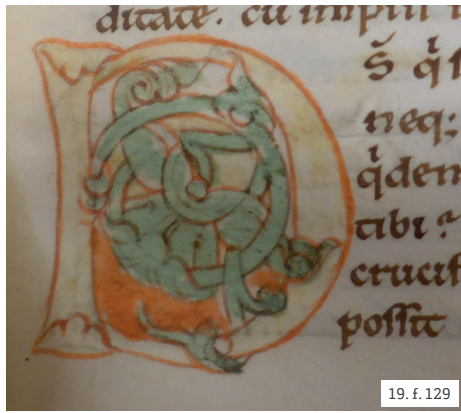 ditate. cu impii
D
S̄ qͥ
neq;
qͥdem
tibi
crucif
possit
19. f. 129